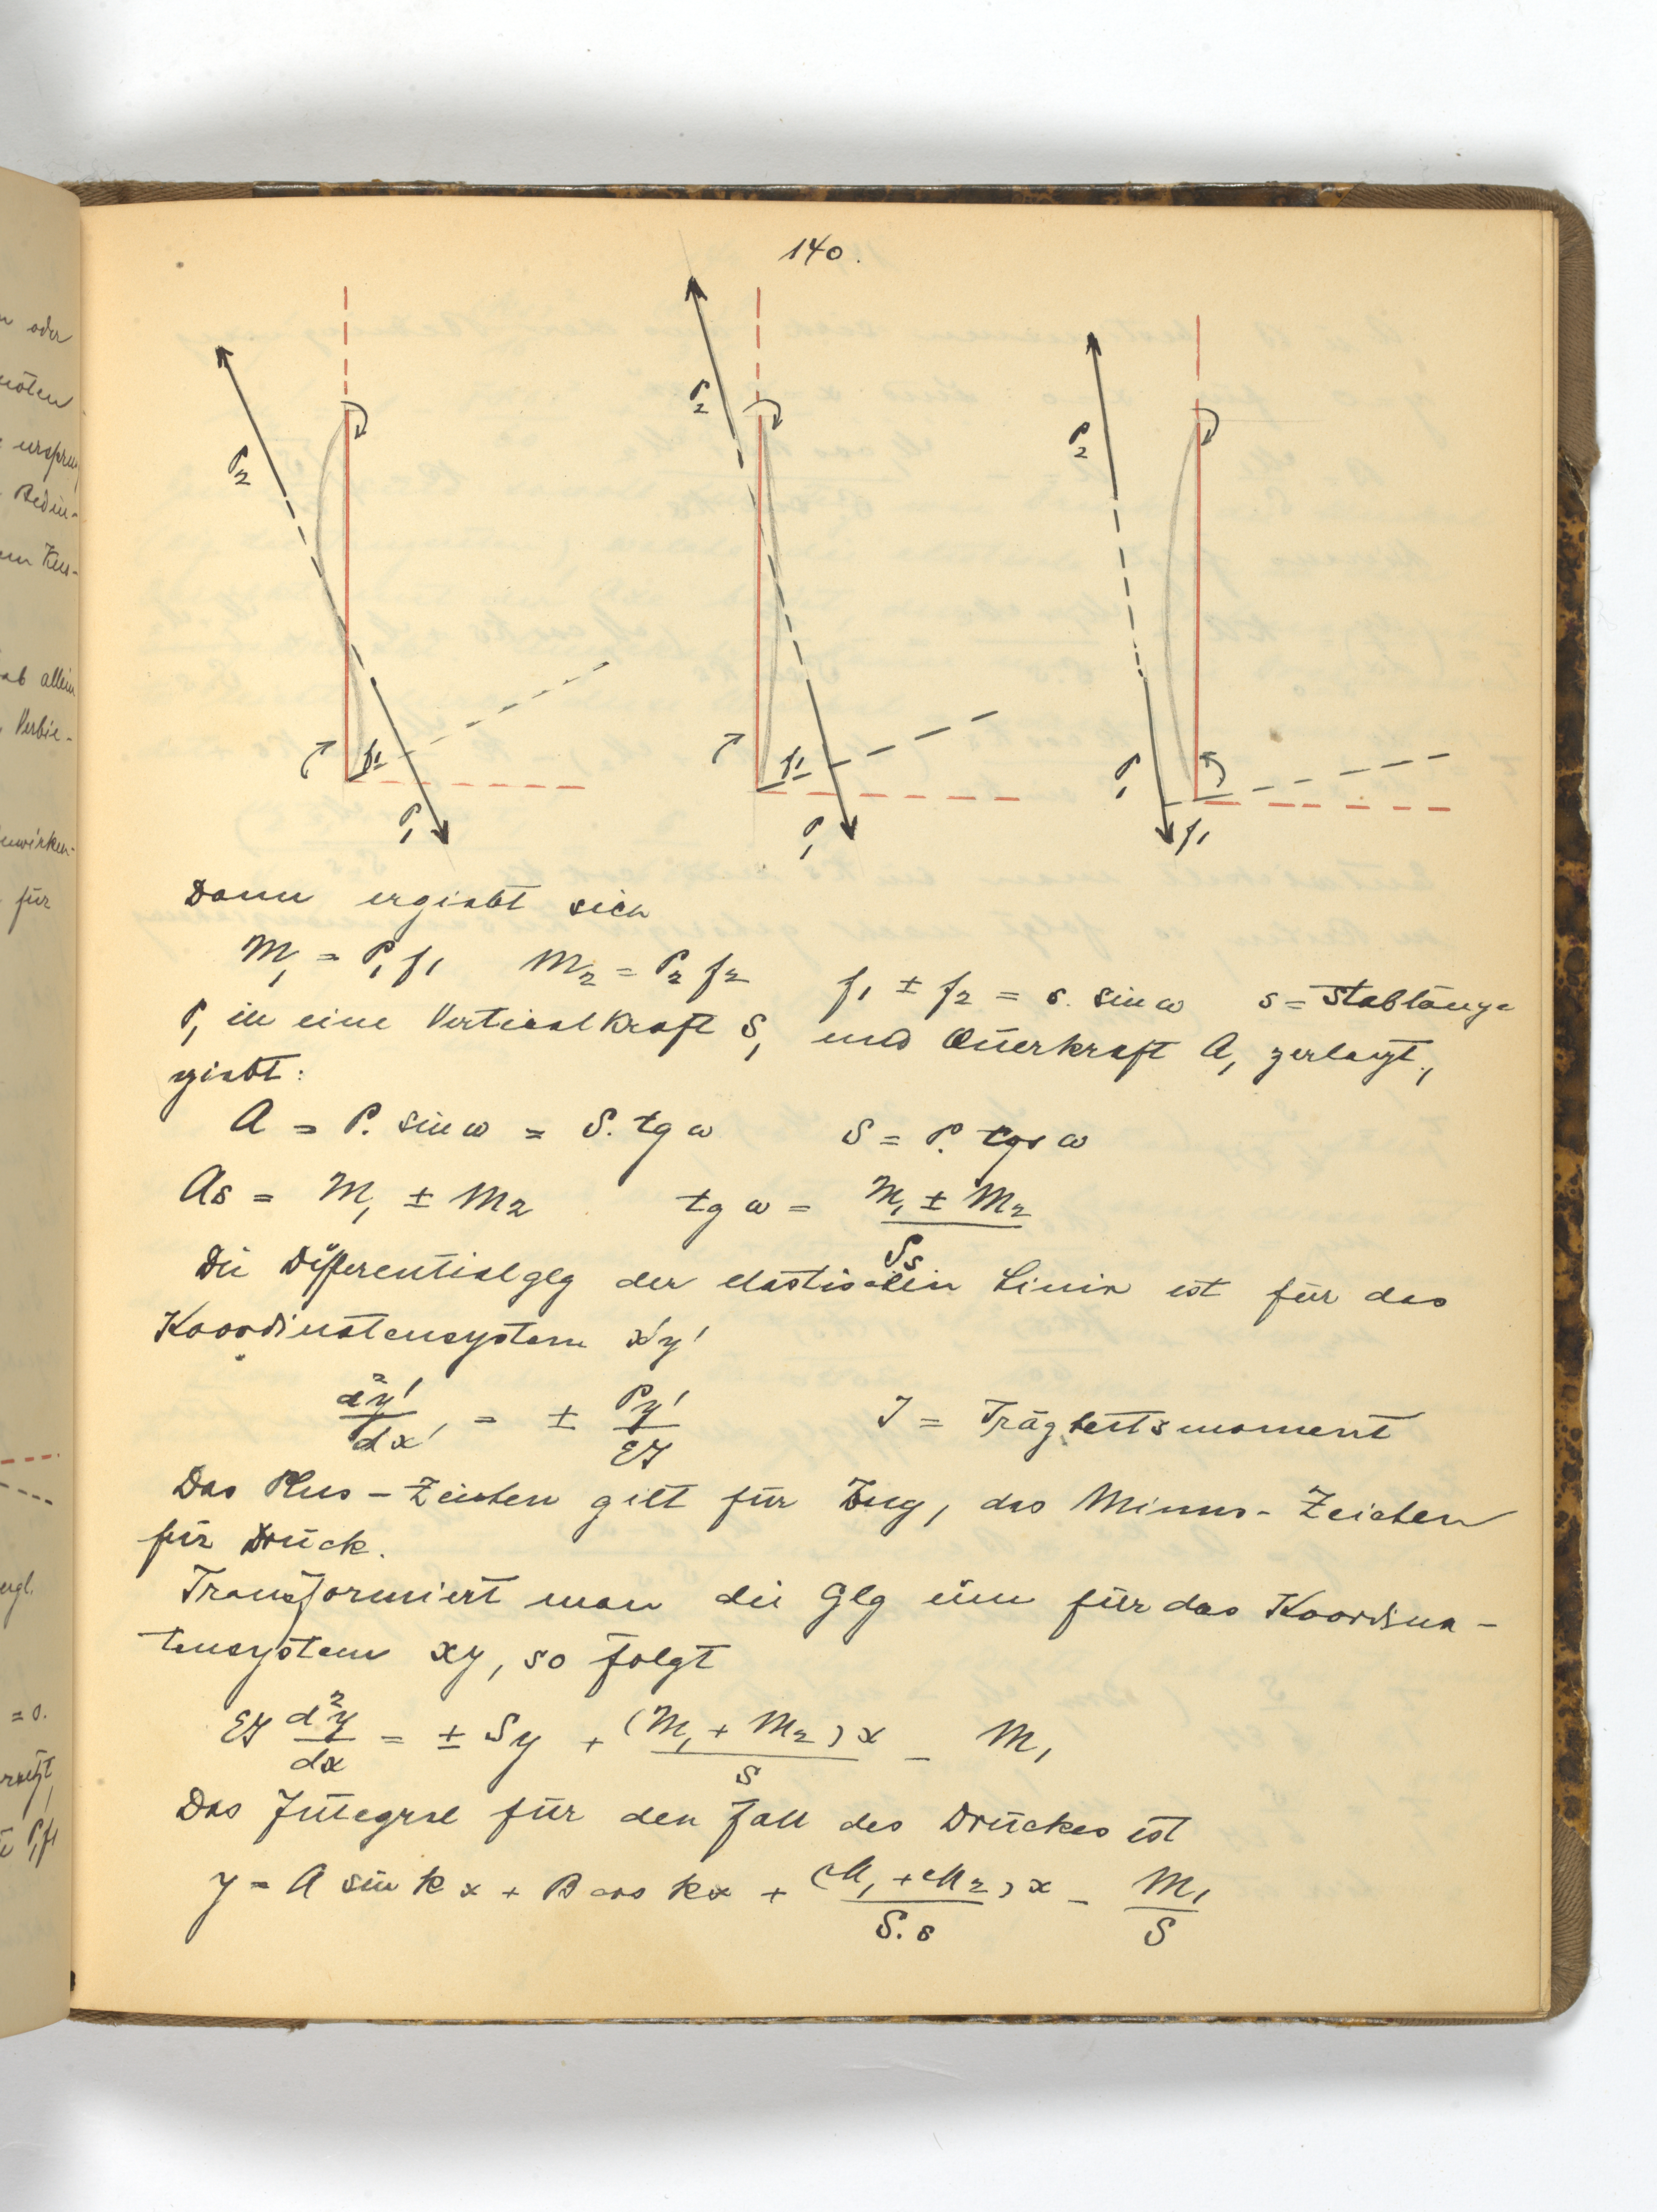 140.
P2
P2
P2
f1
f1
P1
P1
P1
f1
Dann ergiebt sich
M1 = P1 f1 M2 = P2 f2 f1 ± f2 = s. sin ω s = Stablänge
P1 in eine Vertical Kraft S1 und Querkraft A1 zerlegt,
giebt:
A = P. sin ω = S. tg ω S = P. ω
As = M1 ± M2 tg ω = M1 ± M2 / Ss
Die Differentialglg der elastischen Linie ist für das
Koordinatensystem x'y'
d²y' / dx' = ± Py' / EJ J = Trägheitsmoment
Das Plus-Zeichen gilt für Zug, das Minus-Zeichen
für Druck.
Transformiert man die Glg um für das Koordina-
tensystem xy, so folgt
EJ d²y / dx = ± Sy + (M1 + M2) x / s - M1
Das Integral für den Fall des Druckes ist
y = A sin k x + B cos kx + (M1 + M2) x / S. s - M1 / S
oder
allein
Verbie-
für
= 0.
P1f1